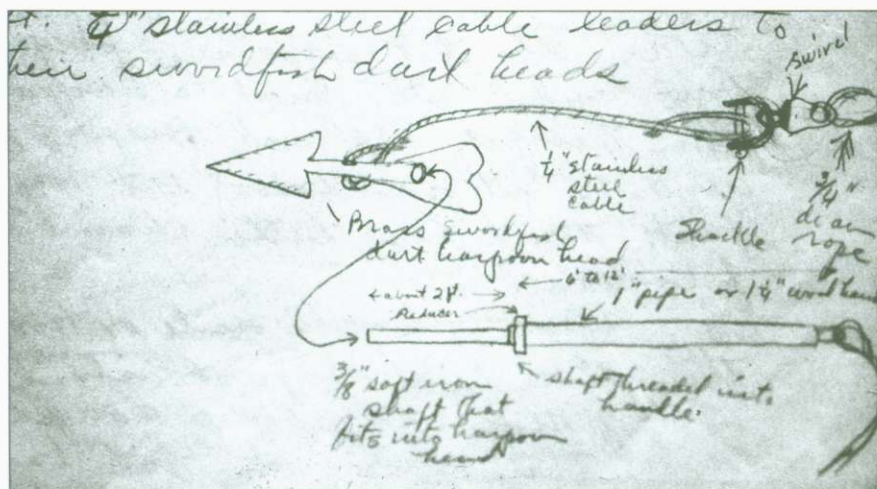 t. 1/4" stainless steel cable leaders to
their swordfish dart heads
swivel
1/4" stainless
steel
cable
Shackle
3/4"
diam
rope
Brass swordfish
dart harpoon head
6' to 12'
about 2 ft.
Reducer
1" pipe or 1 1/4" wood
3/8" soft iron
shaft that
fits into harpoon
head
shaft threaded into
handle.